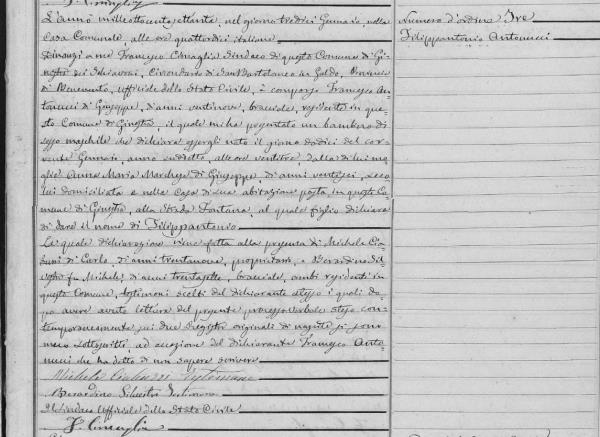 L'anno milleottocentosettanta, nel giorno tredici Gennaio, nella
Casa Comunale, alle ore quattordici italiane.
Dinanzi a me Francesco Sindaco di questo Comune di Gi-
nestra dei Schiavoni, Circondario di San Bartolomeo in Galdo, Provincia
di Benevento, Uffiziale dello Stato Civile, è comparso Francesco An-
tonucci di Giuseppe, di anni ventinove, bracciale, residente in que-
sto Comune di Ginestra, il quale mi ha presentato un bambino di
sesso maschile che dichiara essergli nato il giorno dodici del cor-
rente Gennaio, anno suddetto, alle ore ventitre, dalla di lui mo-
glie Anna Maria di Giuseppe, di anni ventisei, seco
lui domiciliata e nella Casa di sua abitazione posta in questo Co-
mune di Ginestra, alla strada Fontana, al quale figlio dichiara
di dare il nome di Filippantonio
La quale dichiarazione viene fatta alla presenza di Michele
di Carlo, di anni trentanove, proprietario, e Berardino Sil-
vestri fu Michele, di anni trentasette, bracciale, ambi residenti in
questo Comune, testimoni scelti dal dichiarante stesso i quali do-
po avere avuto lettura del presente processo verbale steso con-
temporaneamente sui due Registri originali di nascite si sono
meco sottoscritti, ad eccezione del dichiarante Francesco Anto-
nucci che ha detto di non sapere scrivere
Michele testimone
Berardino Silvestri testimone
Il Sindaco Uffiziale dello Stato Civile
F.
Numero d'ordine Tre
Filippantonio Antonucci